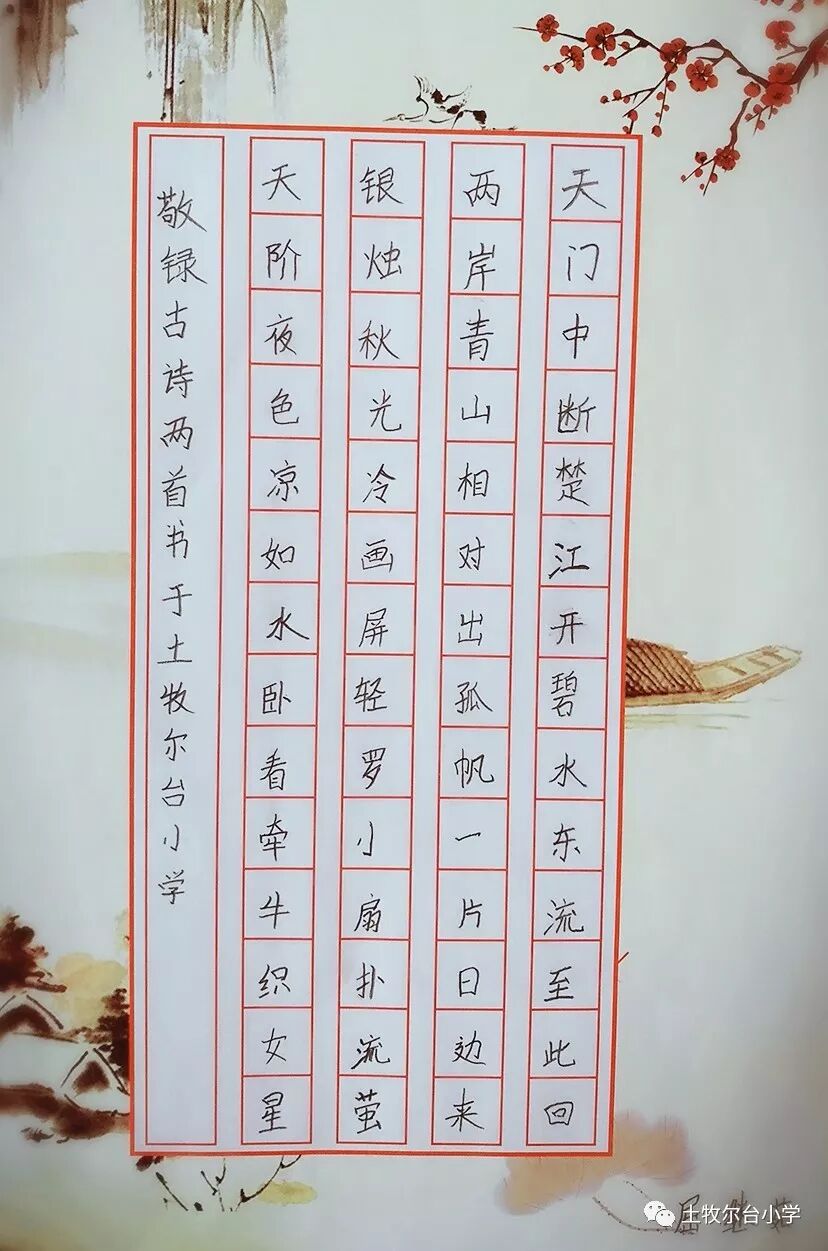 天门中断楚江开碧水东流至此回
两岸青山相对出孤帆一片日边来
银烛秋光冷画屏轻罗小扇扑流萤
天阶夜色凉如水卧看牵牛织女星
敬録古诗两首书于土牧尔台小学
土牧尔台小学